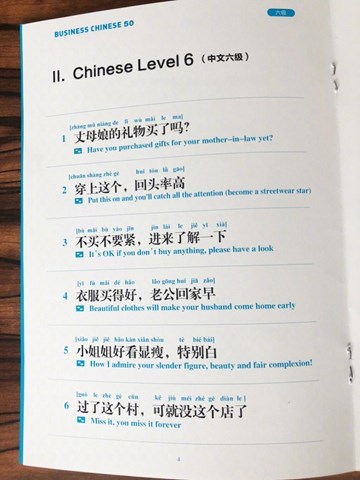 BUSINESS CHINESE 50
六级
II. Chinese Level 6（中文六级）
[zhàng mǔ niáng de lǐ wù mǎi le ma]
1 丈母娘的礼物买了吗？
Have you purchased gifts for your mother-in-law yet?
[chuān shàng zhè gè huí tóu lǜ gāo]
2 穿上这个，回头率高
Put this on and you'll catch all the attention (become a streetwear star)
[bù mǎi bù yào jǐn jìn lái le jiě yī xià]
3 不买不要紧，进来了解一下
It's OK if you don't buy anything, please have a look
[yī fú mǎi dé hǎo lǎo gōng huí jiā zǎo]
4 衣服买得好，老公回家早
Beautiful clothes will make your husband come home early
[xiǎo jiě jiě hǎo kàn xiǎn shòu tè bié bái]
5 小姐姐好看显瘦，特别白
How I admire your slender figure, beauty and fair complexion!
[guò le zhè gè cūn kě jiù méi zhè gè diàn le]
6 过了这个村，可就没这个店了
Miss it, you miss it forever
4